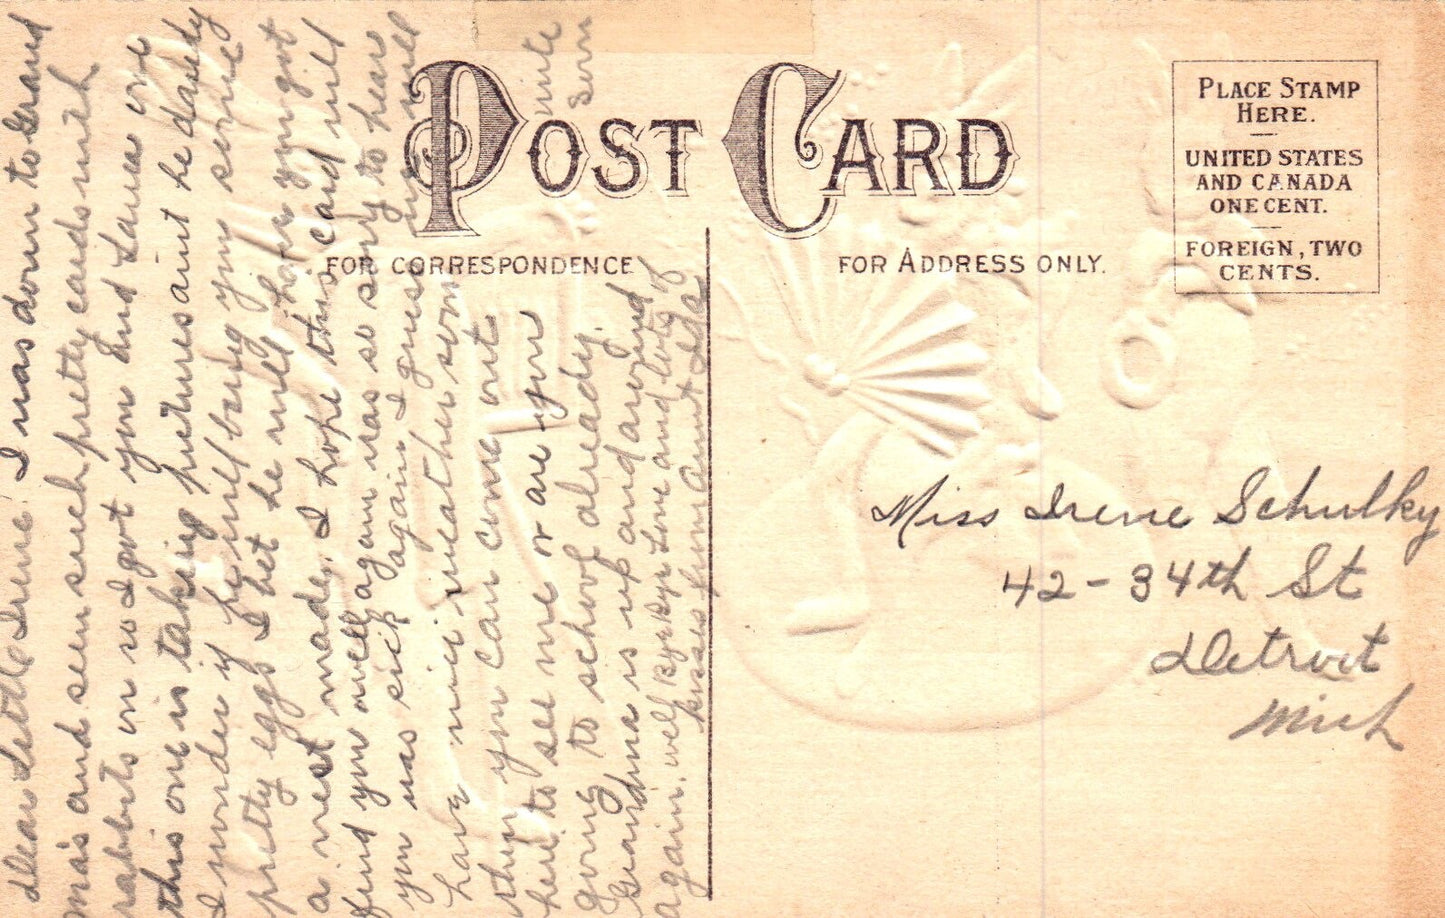 POST CARD
FOR CORRESPONDENCE
FOR ADDRESS ONLY.
PLACE STAMP
HERE.
UNITED STATES
AND CANADA
ONE CENT.
FOREIGN, TWO
CENTS.
Dear Little Irene. I was down to Grand
ma's and seen such pretty cards with
rabbits on so I got you and Laura one
this one is taking pictures aint he dandy
I wonder if he will bring you some
pretty eggs I bet he will have you got
a nest made. I hope this card will
find you well again was so sorry to hear
you was sick again I guess we will
have nice weather soon
then you can come out
here to see me or are you
going to school already.
Grandma is up and around
again. well By By Love and lots of
kisses from Aunt Ida
write
soon
Miss Irene Schulky
42-34th St
Detroit
Mich